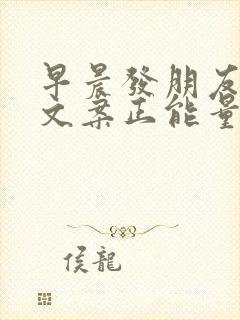 早晨發朋友
文案正能量
侯龍